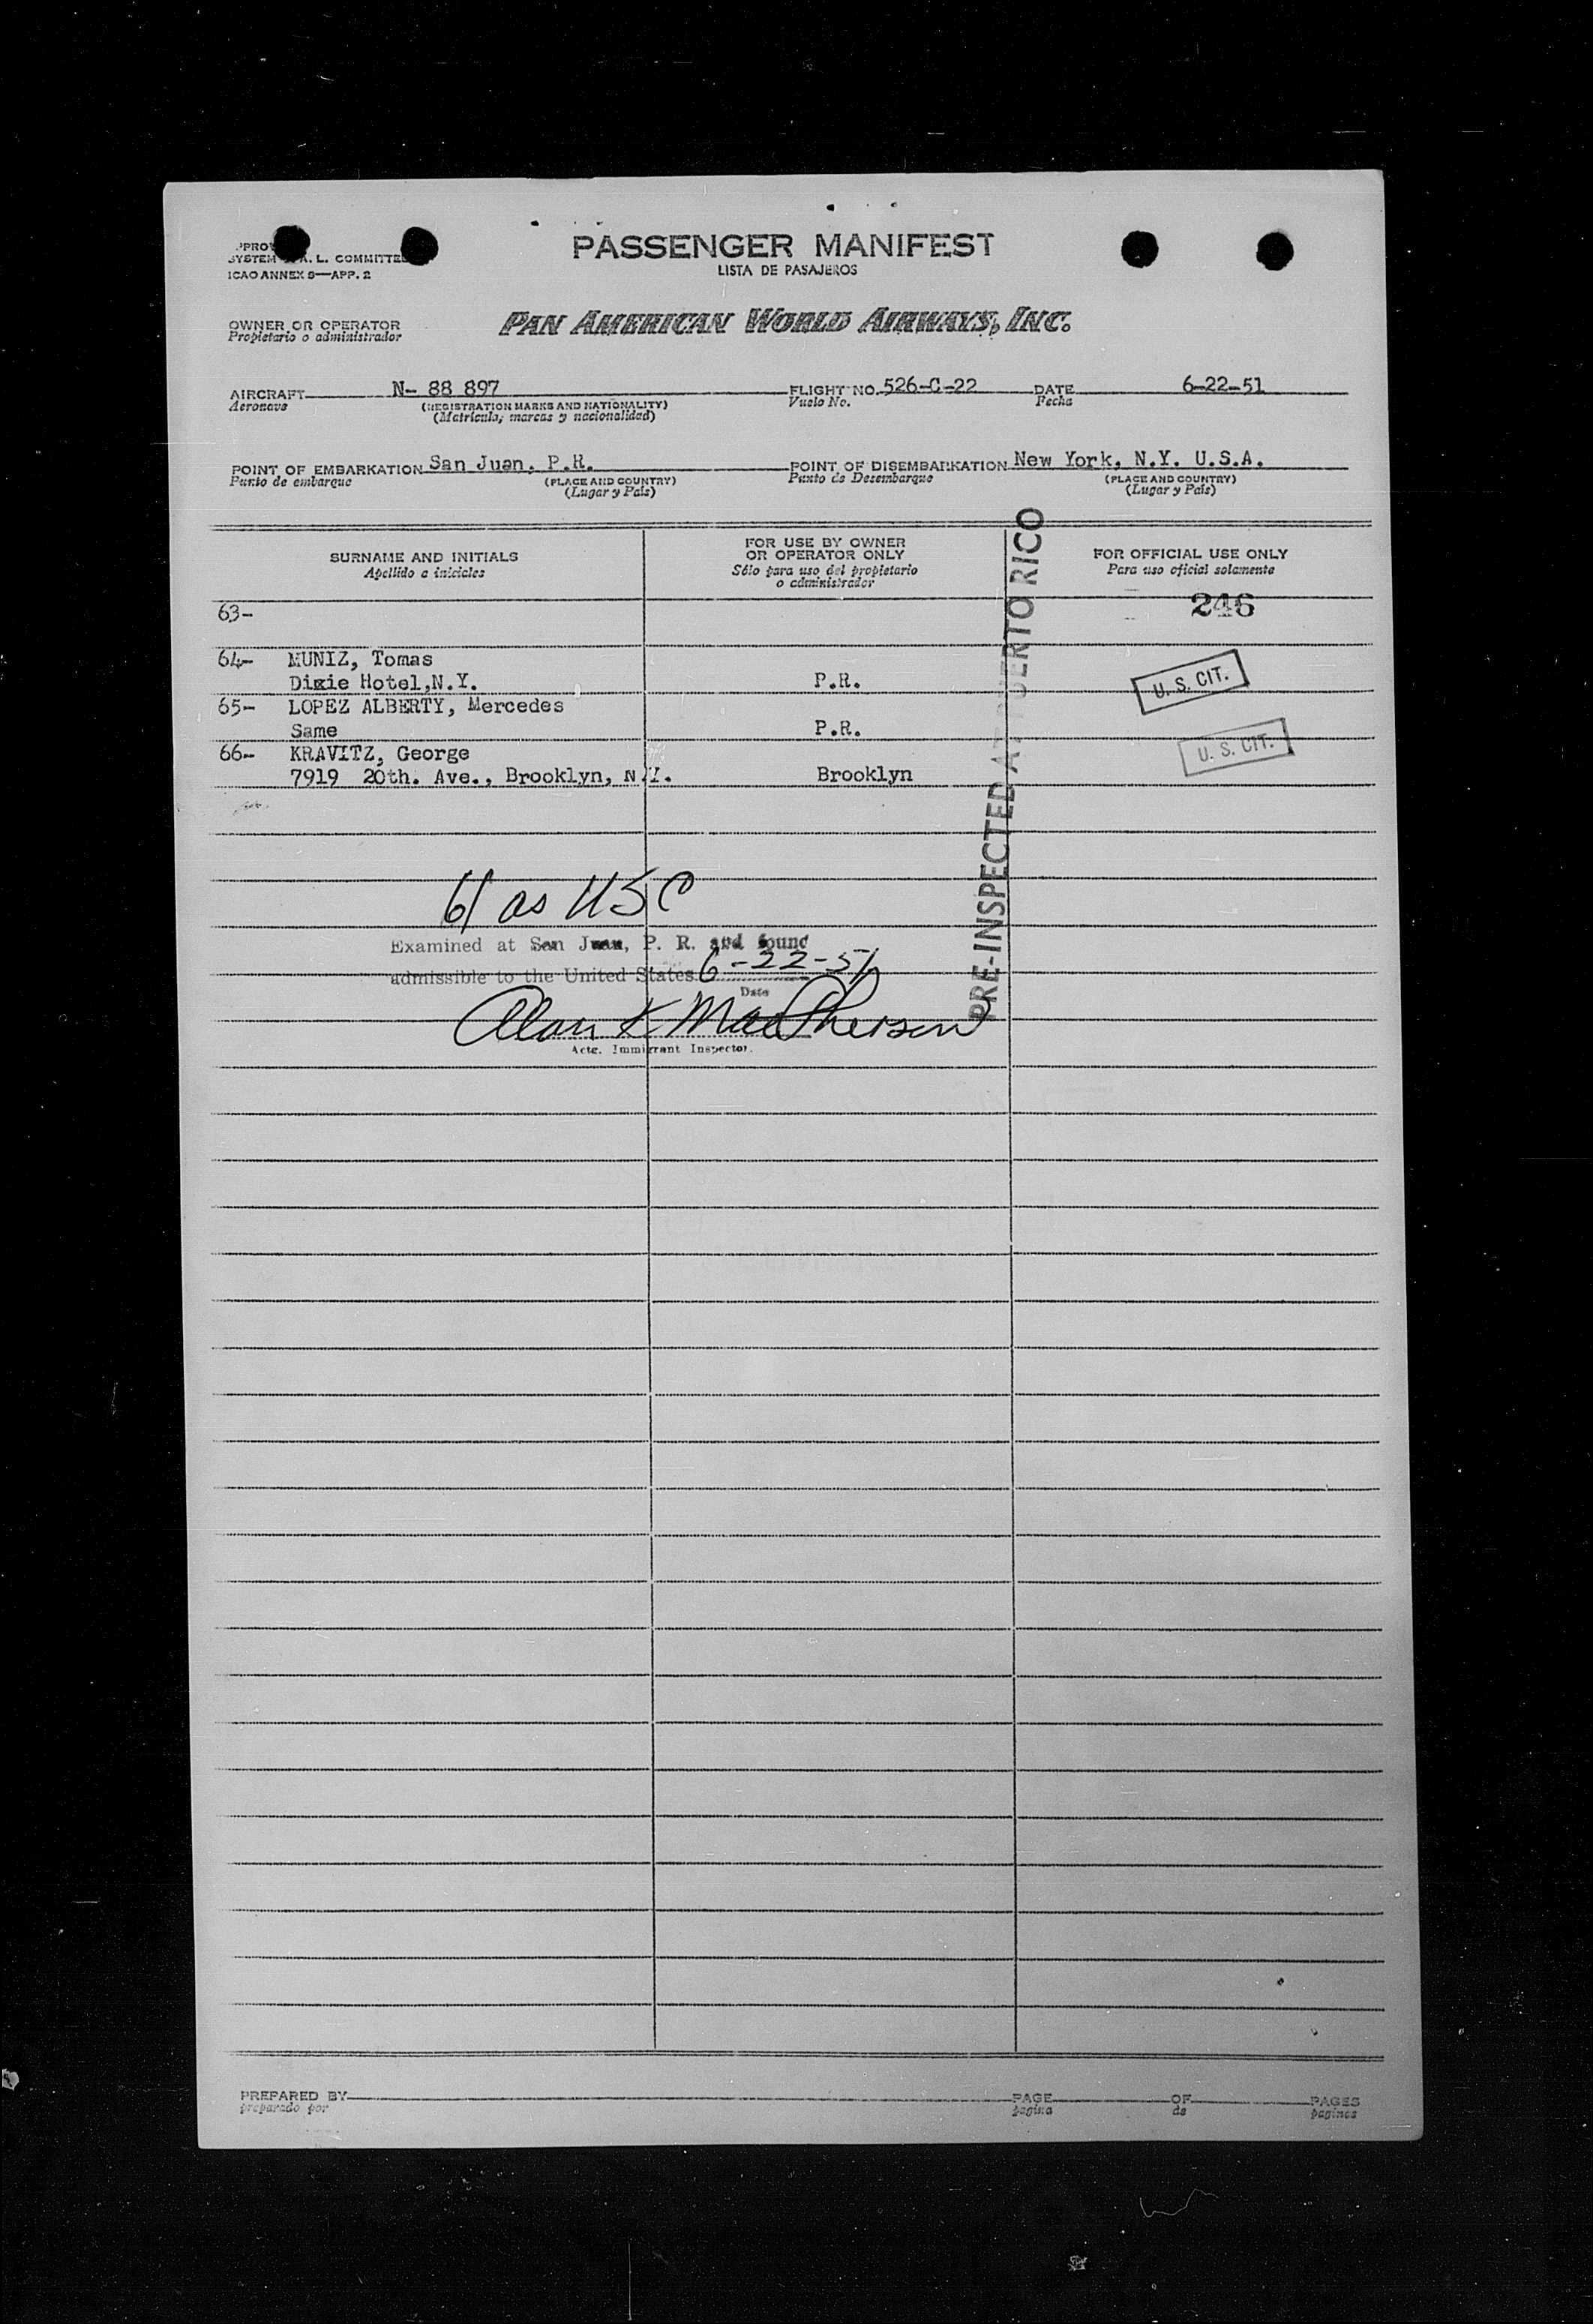 PASSENGER MANIFEST
LISTA DE PASAJEROS
SYSTEM L. COMMITTEE
ICAO ANNEX 9—APP. 2
OWNER OR OPERATOR
Propietario o administrador
PAN AMERICAN WORLD AIRWAYS, INC.
AIRCRAFT N- 88 897 FLIGHT NO. 526-C-22 DATE 6-22-51
Aeronave (REGISTRATION MARKS AND NATIONALITY) Vuelo No. Fecha
(Matricula, marcas y nacionalidad)
POINT OF EMBARKATION San Juan, P.R. POINT OF DISEMBARKATION New York, N.Y. U.S.A.
Punto de embarque (PLACE AND COUNTRY) Punto de Desembarque (PLACE AND COUNTRY)
(Lugar y País) (Lugar y País)
SURNAME AND INITIALS
Apellido e iniciales
FOR USE BY OWNER
OR OPERATOR ONLY
Sólo para uso del propietario
o administrador
FOR OFFICIAL USE ONLY
Para uso oficial solamente
63-
246
64- MUNIZ, Tomas
Dixie Hotel,N.Y. P.R. U. S. CIT.
65- LOPEZ ALBERTY, Mercedes
Same P.R. U. S. CIT.
66- KRAVITZ, George
7919 20th. Ave., Brooklyn, N.Y. Brooklyn
PRE-INSPECTED AT PUERTO RICO
61 as USC
Examined at San Juan, P. R. and found
admissible to the United States 6-22-51
Date
Alan K MacPherson
Actg. Immigrant Inspector.
PREPARED BY PAGE OF PAGES
preparado por pagina de paginas